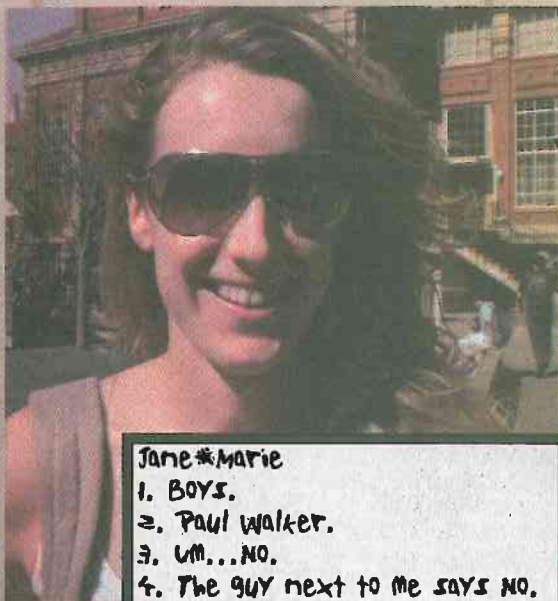 Jane*Marie
1. BOYS.
2. Paul Walker.
3. UM...NO.
4. The guy next to me says NO.